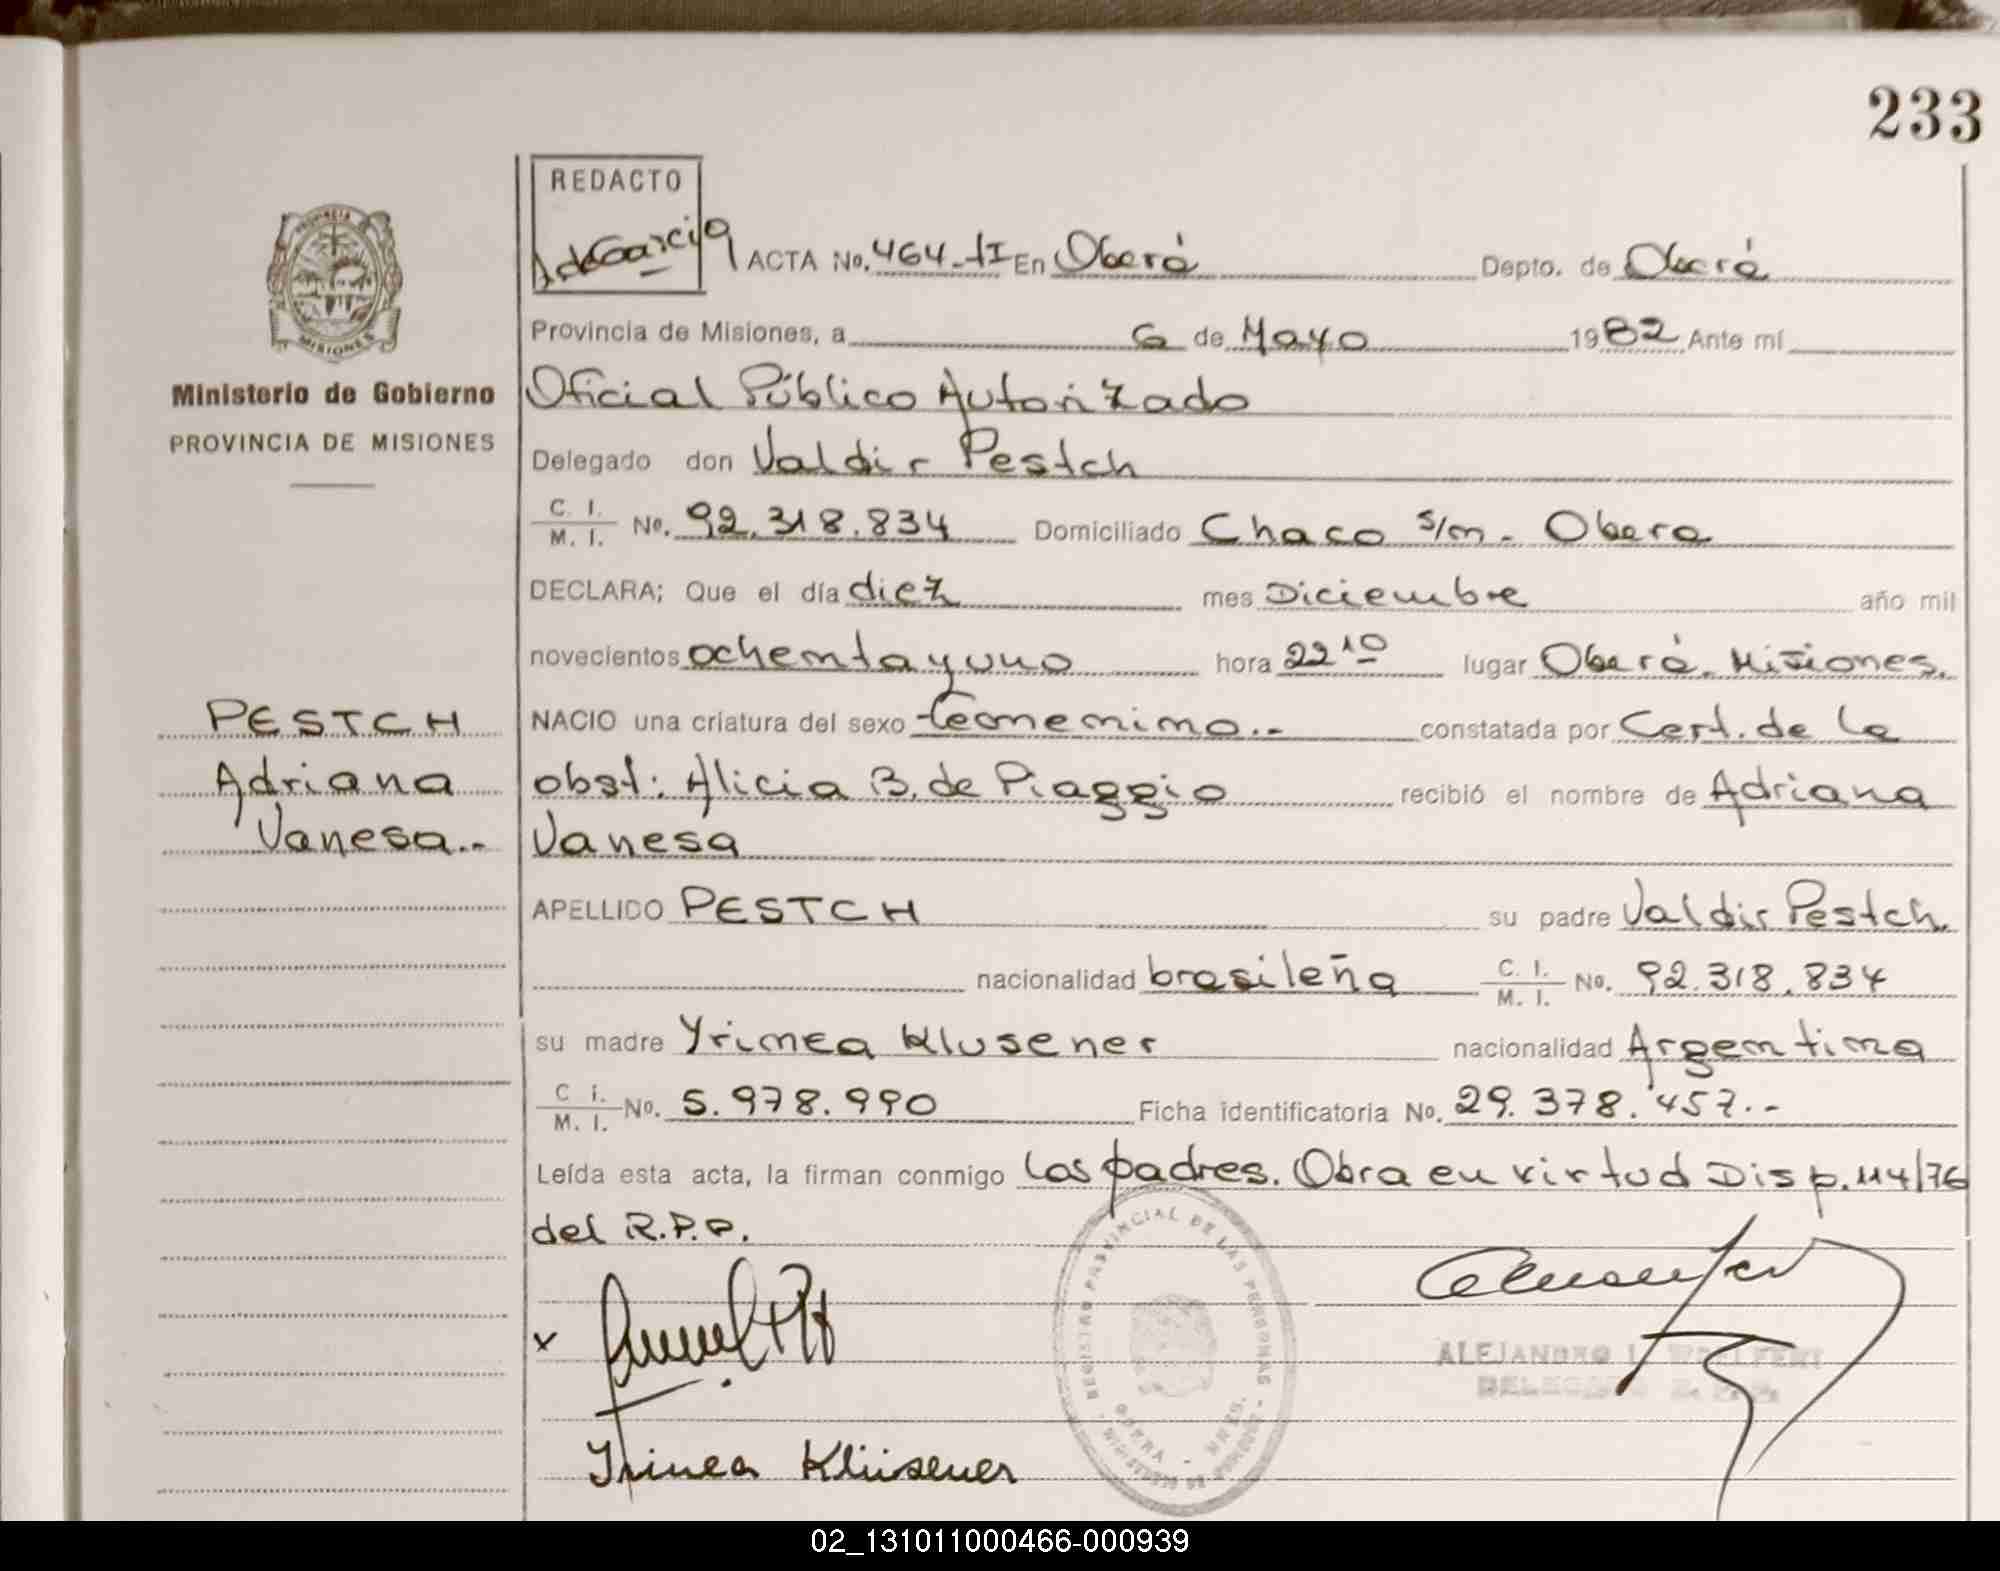 233
REDACTO
AdeGarcia
ACTA No. 464-tI En Oberá Depto. de Oberá
PROVINCIA
MISIONES
Provincia de Misiones, a 6 de Mayo 1982 Ante mí
Ministerio de Gobierno
PROVINCIA DE MISIONES
Oficial Público Autorizado
Delegado don Valdir Pestch
C. I. / M. I. No. 92.318.834 Domiciliado Chaco s/n. Obera
DECLARA; Que el día diez mes Diciembre año mil
novecientos ochentayuno hora 22 10 lugar Oberá. Misiones.
PESTCH
Adriana
Vanesa.-
NACIO una criatura del sexo femenino.- constatada por Cert. de la
obst: Alicia B. de Piaggio recibió el nombre de Adriana
Vanesa
APELLIDO PESTCH su padre Valdir Pestch.
nacionalidad brasileña C. I. / M. I. No. 92.318.834
su madre Yrinea Klusener nacionalidad Argentina
C. I. / M. I. No. 5.978.990 Ficha identificatoria No. 29.378.457.-
Leída esta acta, la firman conmigo los padres. Obra en virtud Disp. 114/76
del R.P.P.
REGISTRO PROVINCIAL DE LAS PERSONAS
OBERA - MNES.
x
ALEJANDRO
DELEGADO R. P. P.
Yrinea Klüsener
02_131011000466-000939